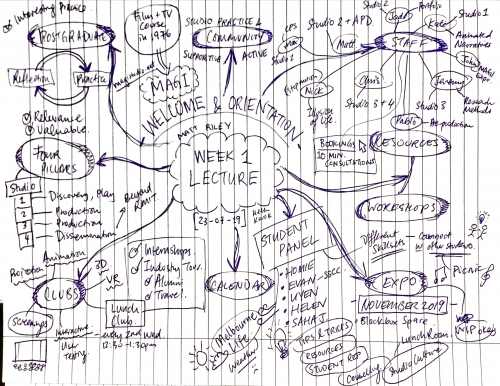 Interesting Practice
POSTGRADUATE
Reflection
Practice
Relevance
Valuable.
Film + TV
Course
in 1976
MAGI
STUDIO PRACTICE &
COMMUNITY
SUPPORTIVE
ACTIVE
WELCOME & ORIENTATION
MATT RILEY
WEEK 1
LECTURE
23-07-19
Studio 2 + APD
Matt
Studio 1
Nick
Illusion
of Life.
Chris
Studio 3 + 4
Studio 2
STAFF
Kate
Studio 1
Animated
Narratives
MAGI
Expo
Research
Methods
Studio 3
Pablo
Pre-production
BOOKINGS
10 MIN.
CONSULTATIONS
RESOURCES
WORKSHOPS
Different
Skillsets
Connect
w other students.
EXPO
NOVEMBER 2019
Blackbox Space
Picnic
Lunch Room
Studio Culture
Connelly
FOUR
PILLARS
Studio
1
Discovery, Play
2
Production
3
Production
4
Dissemination
Beyond
RMIT.
Animation
3D
VR
CLUBS
Screenings
Interactive
User
Testing
Internships.
Industry Tour.
Alumni
Travel.
Lunch
Club.
every 2nd Wed
12:30-1:30pm
CALENDAR
Melbourne
Life
Weather
STUDENT
PANEL
HOMIE
EVAN - SSCC.
UYEN
HELEN
SAHAJ
TIPS & TRICKS
RESOURCES
STUDENT REP